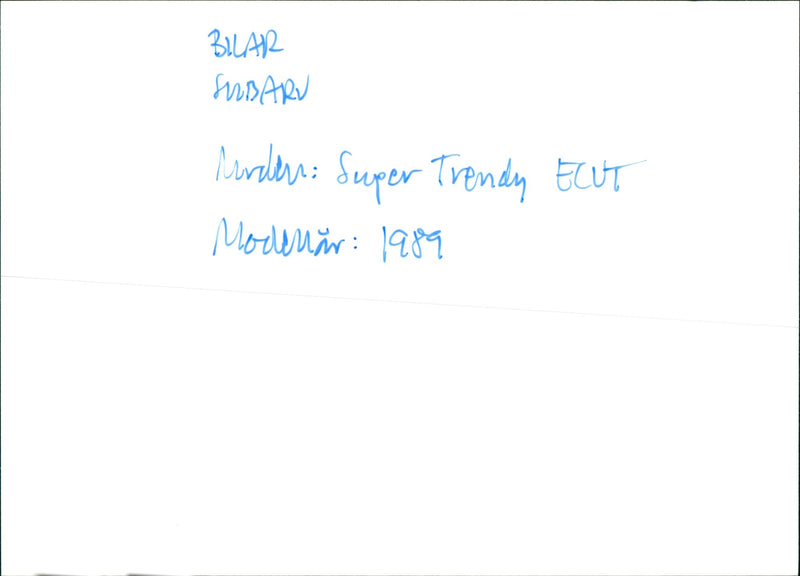 BILAR
SUBARU
Super Trendy ECVT
Modellår: 1989